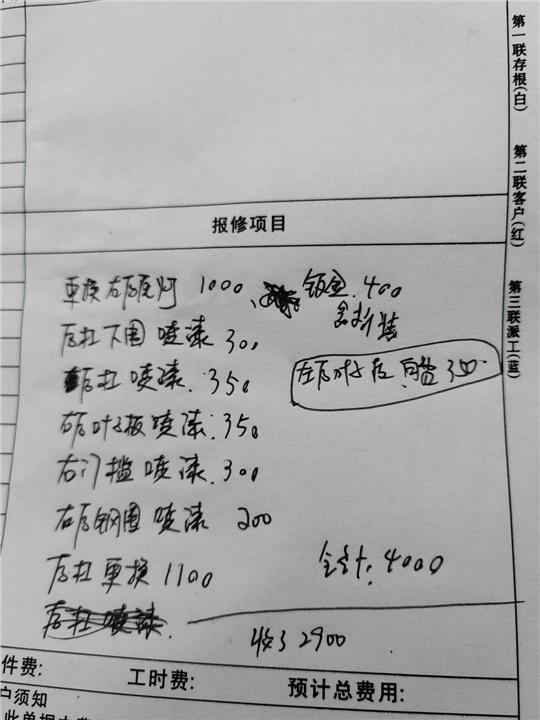 第一联存根(白)
第二联客户(红)
第三联派工(蓝)
报修项目
更换右后尾灯 1000、 钣金.400
含拆装
后杠下围喷漆 300
后杠喷漆.350
右后叶子板喷漆.350
右门槛喷漆.300
右后钢圈喷漆 200
后杠更换 1100
合计.4000
后杠喷漆.
收了2900
件费: 工时费: 预计总费用:
户须知